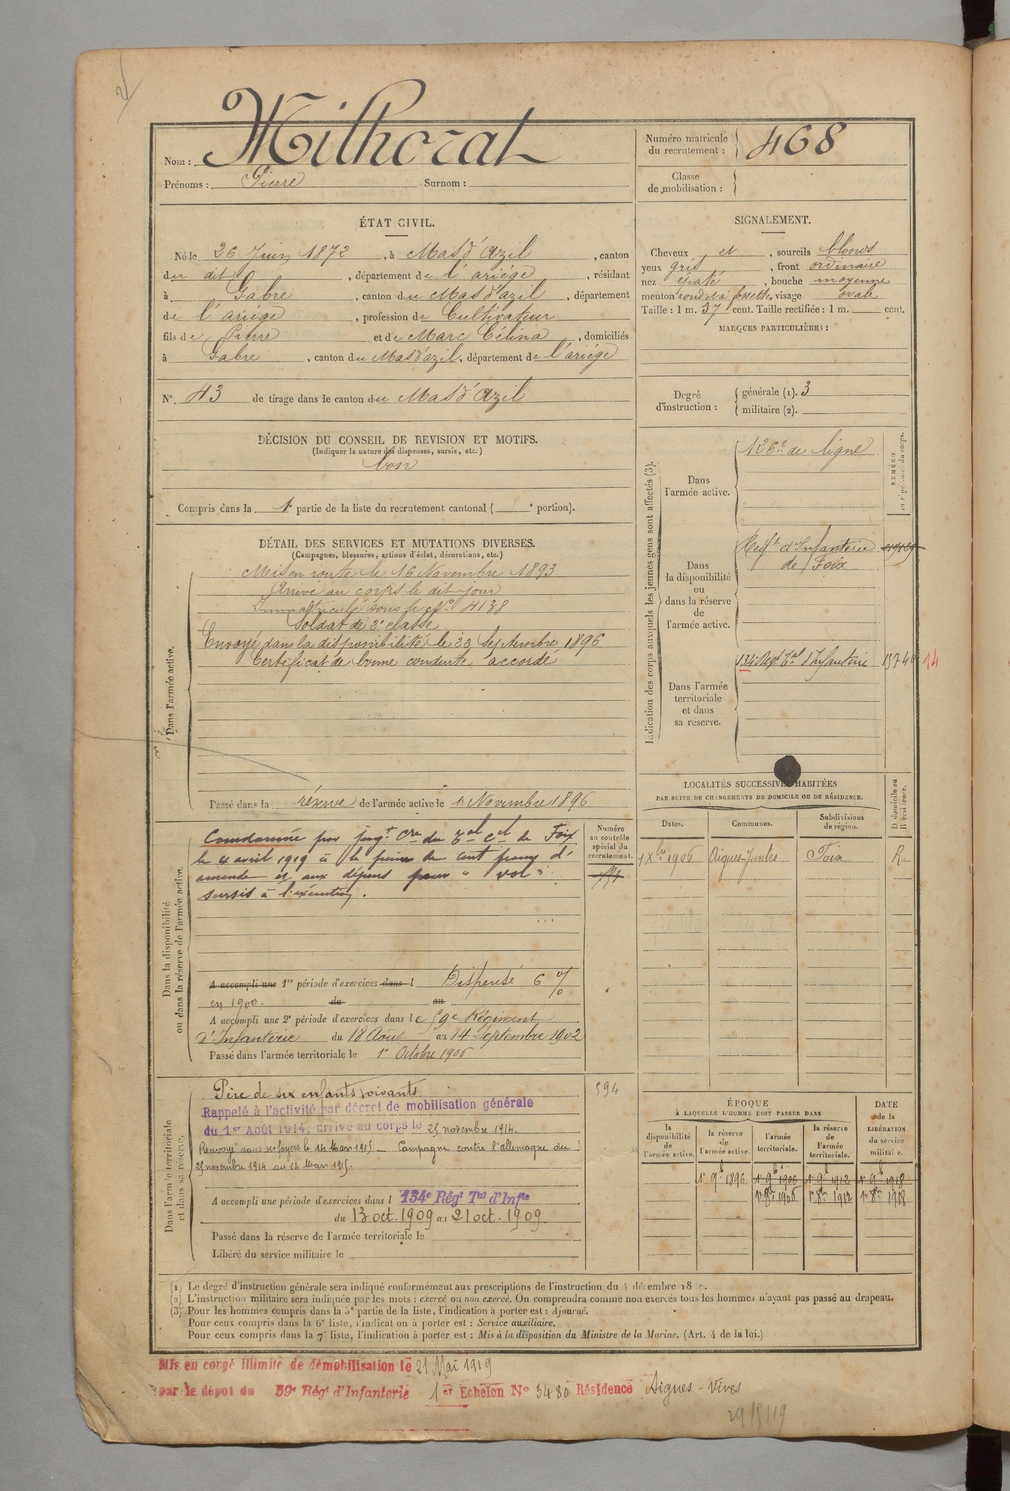 Nom : Milhorat
Prénoms : Pierre Surnom :
Numéro matricule du recrutement : 468
Classe de mobilisation :
ÉTAT CIVIL.
Né le 26 Juin 1872, à Mas d'Azil, canton
du dit, département de l'ariège, résidant
à Gabre, canton du Mas d'azil, département
de l'ariège, profession de Cultivateur
fils de Pierre et de Marc Célina, domiciliés
à Gabre, canton du Mas d'azil, département de l'ariège
N° 43 de tirage dans le canton du Mas d'Azil
SIGNALEMENT.
Cheveux et, sourcils blonds
yeux gris, front ordinaire
nez épaté, bouche moyenne
menton rond et à fossette, visage ovale
Taille : 1 m. 57 cent. Taille rectifiée : 1 m. cent.
MARQUES PARTICULIÈRES :
Degré d'instruction : générale (1). 3
militaire (2).
DÉCISION DU CONSEIL DE REVISION ET MOTIFS.
(Indiquer la nature des dispenses, sursis, etc.)
bon
Compris dans la 1e partie de la liste du recrutement cantonal ( e portion).
DÉTAIL DES SERVICES ET MUTATIONS DIVERSES.
(Campagnes, blessures, actions d'éclat, décorations, etc.)
Dans l'armée active.
Mis en route le 16 Novembre 1893
Arrivé au corps le dit jour
Immatriculé sous le no 4138
Soldat de 2e classe
Envoyé dans la disponibilité le 23 Septembre 1896
Certificat de bonne conduite accordé
Passé dans la réserve de l'armée active le 1 Novembre 1896
Indication des corps auxquels les jeunes gens sont affectés (3).
NUMÉRO
Dans l'armée active.
126e de ligne
Dans la disponibilité ou dans la réserve de l'armée active.
Regt d'Infanterie
de Foix
Dans l'armée territoriale et dans sa réserve.
134e Regt Tal d'Infanterie 14
LOCALITÉS SUCCESSIVES HABITÉES
PAR SUITE DE CHANGEMENTS DE DOMICILE OU DE RÉSIDENCE.
D domicile ou R résidence.
Dates. Communes. Subdivisions de région.
1 Xbre 1906 Aigues-Juntes Foix R
Dans la disponibilité ou dans la réserve de l'armée active.
Numéro au contrôle spécial du recrutement.
Condamné par jugt Cre du Tal Cel de Foix
le 4 avril 1919 à la peine de cent francs d'
amende et aux dépens pour "vol"
sursis à l'exécution.
A accompli une 1re période d'exercices dans l Dispensé 6 %
en 1900 du au
A accompli une 2e période d'exercices dans le 59e Régiment
d'Infanterie du 18 Août au 14 Septembre 1902
Passé dans l'armée territoriale le 1er Octobre 1906
Dans l'armée territoriale et dans sa réserve.
594
Père de six enfants vivants
Rappelé à l'activité par décret de mobilisation générale
du 1er Août 1914, arrivé au corps le 25 novembre 1914.
Renvoyé dans ses foyers le 14 Mars 1915 — Campagne contre l'allemagne du
25 novembre 1914 au 14 Mars 1915.
A accompli une période d'exercices dans l 134e Régt Tal d'Infie
du 13 oct. 1909 au 21 oct. 1909
Passé dans la réserve de l'armée territoriale le
Libéré du service militaire le
ÉPOQUE
À LAQUELLE L'HOMME DOIT PASSER DANS
DATE de la LIBÉRATION du service militaire.
la disponibilité de l'armée active. la réserve de l'armée active. l'armée territoriale. la réserve de l'armée territoriale.
1er 9b 1896 1er 9b 1906 1er 9b 1912 1er 9b 1918
1er 8re 1906 1er 8re 1912 1er 8re 1918
(1) Le degré d'instruction générale sera indiqué conformément aux prescriptions de l'instruction du 4 décembre 18
(2) L'instruction militaire sera indiquée par les mots : exercé ou non exercé. On comprendra comme non exercés tous les hommes n'ayant pas passé au drapeau.
(3) Pour les hommes compris dans la 5e partie de la liste, l'indication à porter est : Ajourné.
Pour ceux compris dans la 6e liste, l'indication à porter est : Service auxiliaire.
Pour ceux compris dans la 7e liste, l'indication à porter est : Mis à la disposition du Ministre de la Marine. (Art. 4 de la loi.)
Mis en congé illimité de démobilisation le 21 Mai 1919
par le dépôt du 59e Régt d'Infanterie 1er Echelon No 3480 Résidence Aigues-Vives
29/5/19